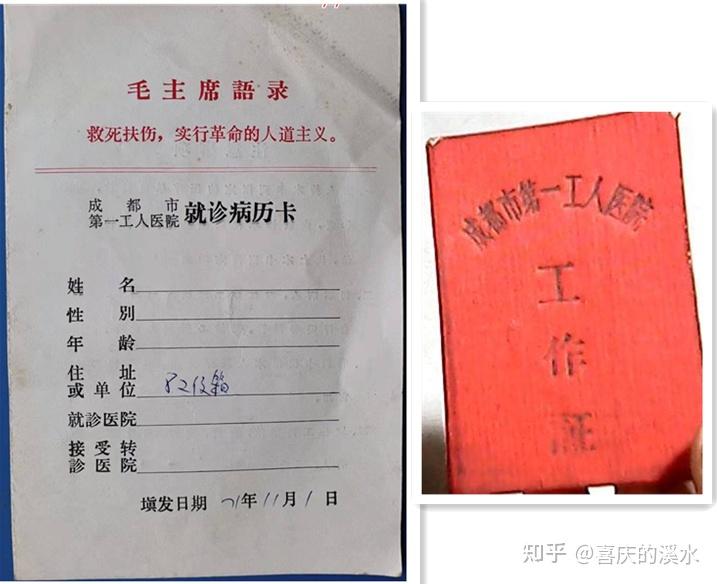 毛主席語录
救死扶伤，实行革命的人道主义。
成都市
第一工人医院 就诊病历卡
姓名
性别
年龄
住址
或单位
就診医院
接受转
診医院
填发日期 71年11月1日
成都市第一工人医院
工作证
知乎 @喜庆的溪水